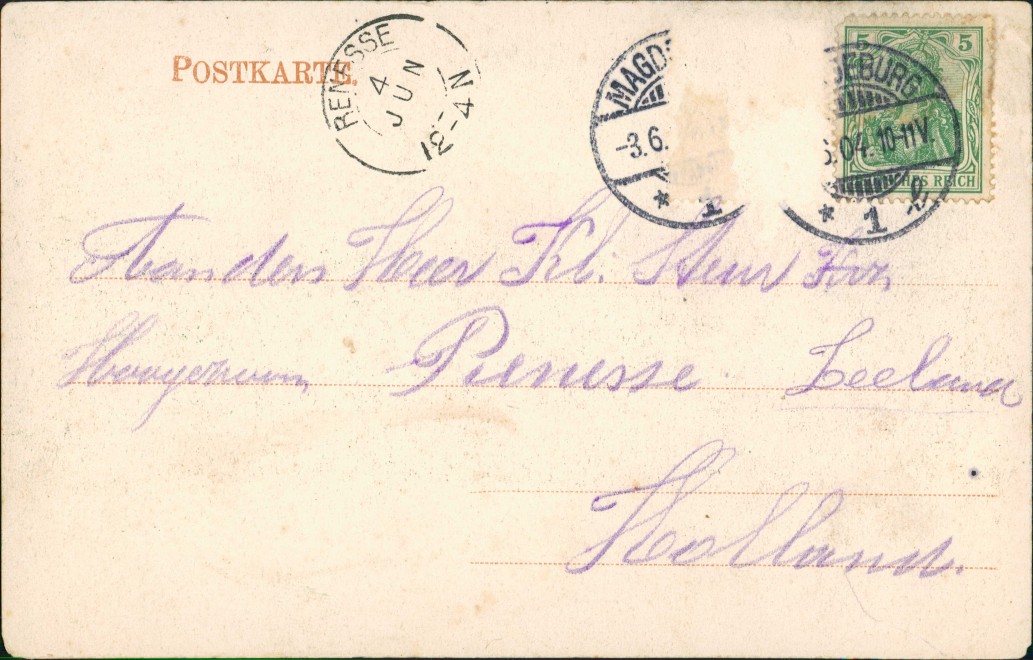 POSTKARTE.
RENESSE
4
JUN
12-4 N
MAGD
-3.6.
* 1
DEBURG
04. 10-11V.
* 1 b
5 5
REICH
Aan den Heer Kl. Steur
Renesse Zeeland
Holland.